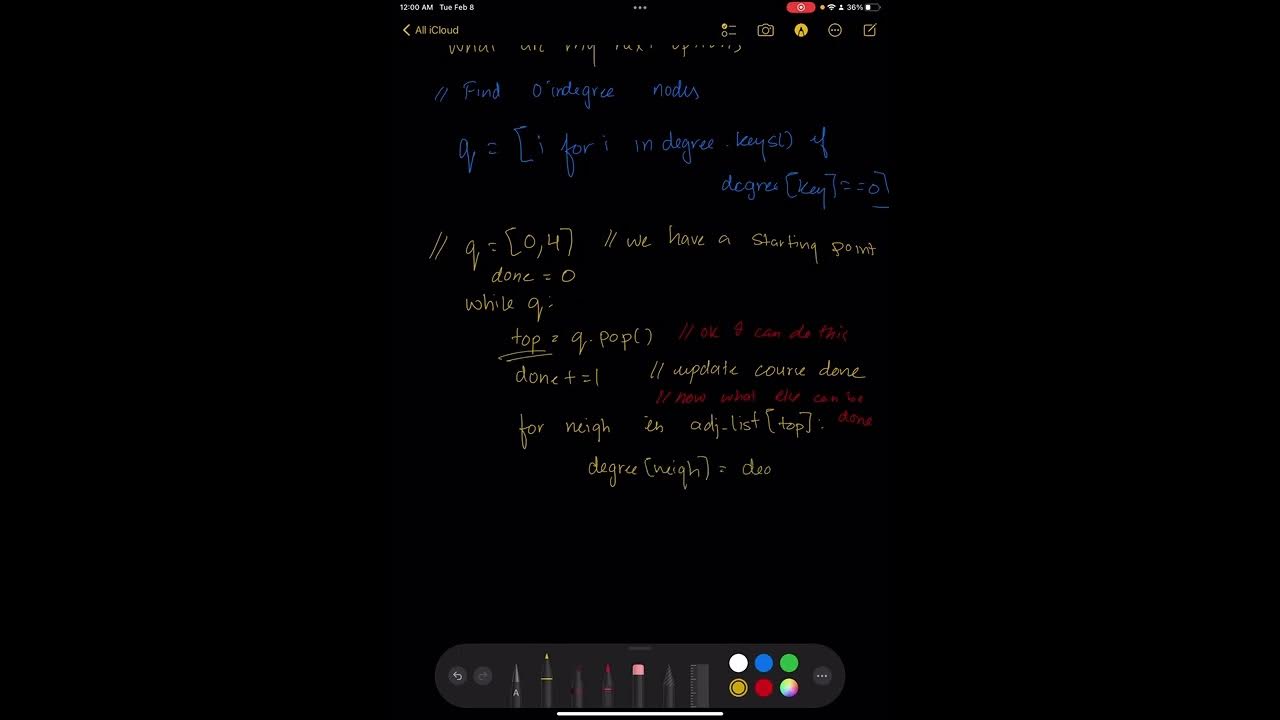 12:00 AM Tue Feb 8
36%
All iCloud
What are my next options
// Find 0 indegree nodes
q = [i for i in degree.keys() if
degree[key]==0]
// q = [0,4] // we have a starting point
done = 0
while q:
top = q.pop() // ok I can do this
done+=1 // update course done
// now what else can be
done
for neigh in adj_list[top]:
degree[neigh] = deg
A